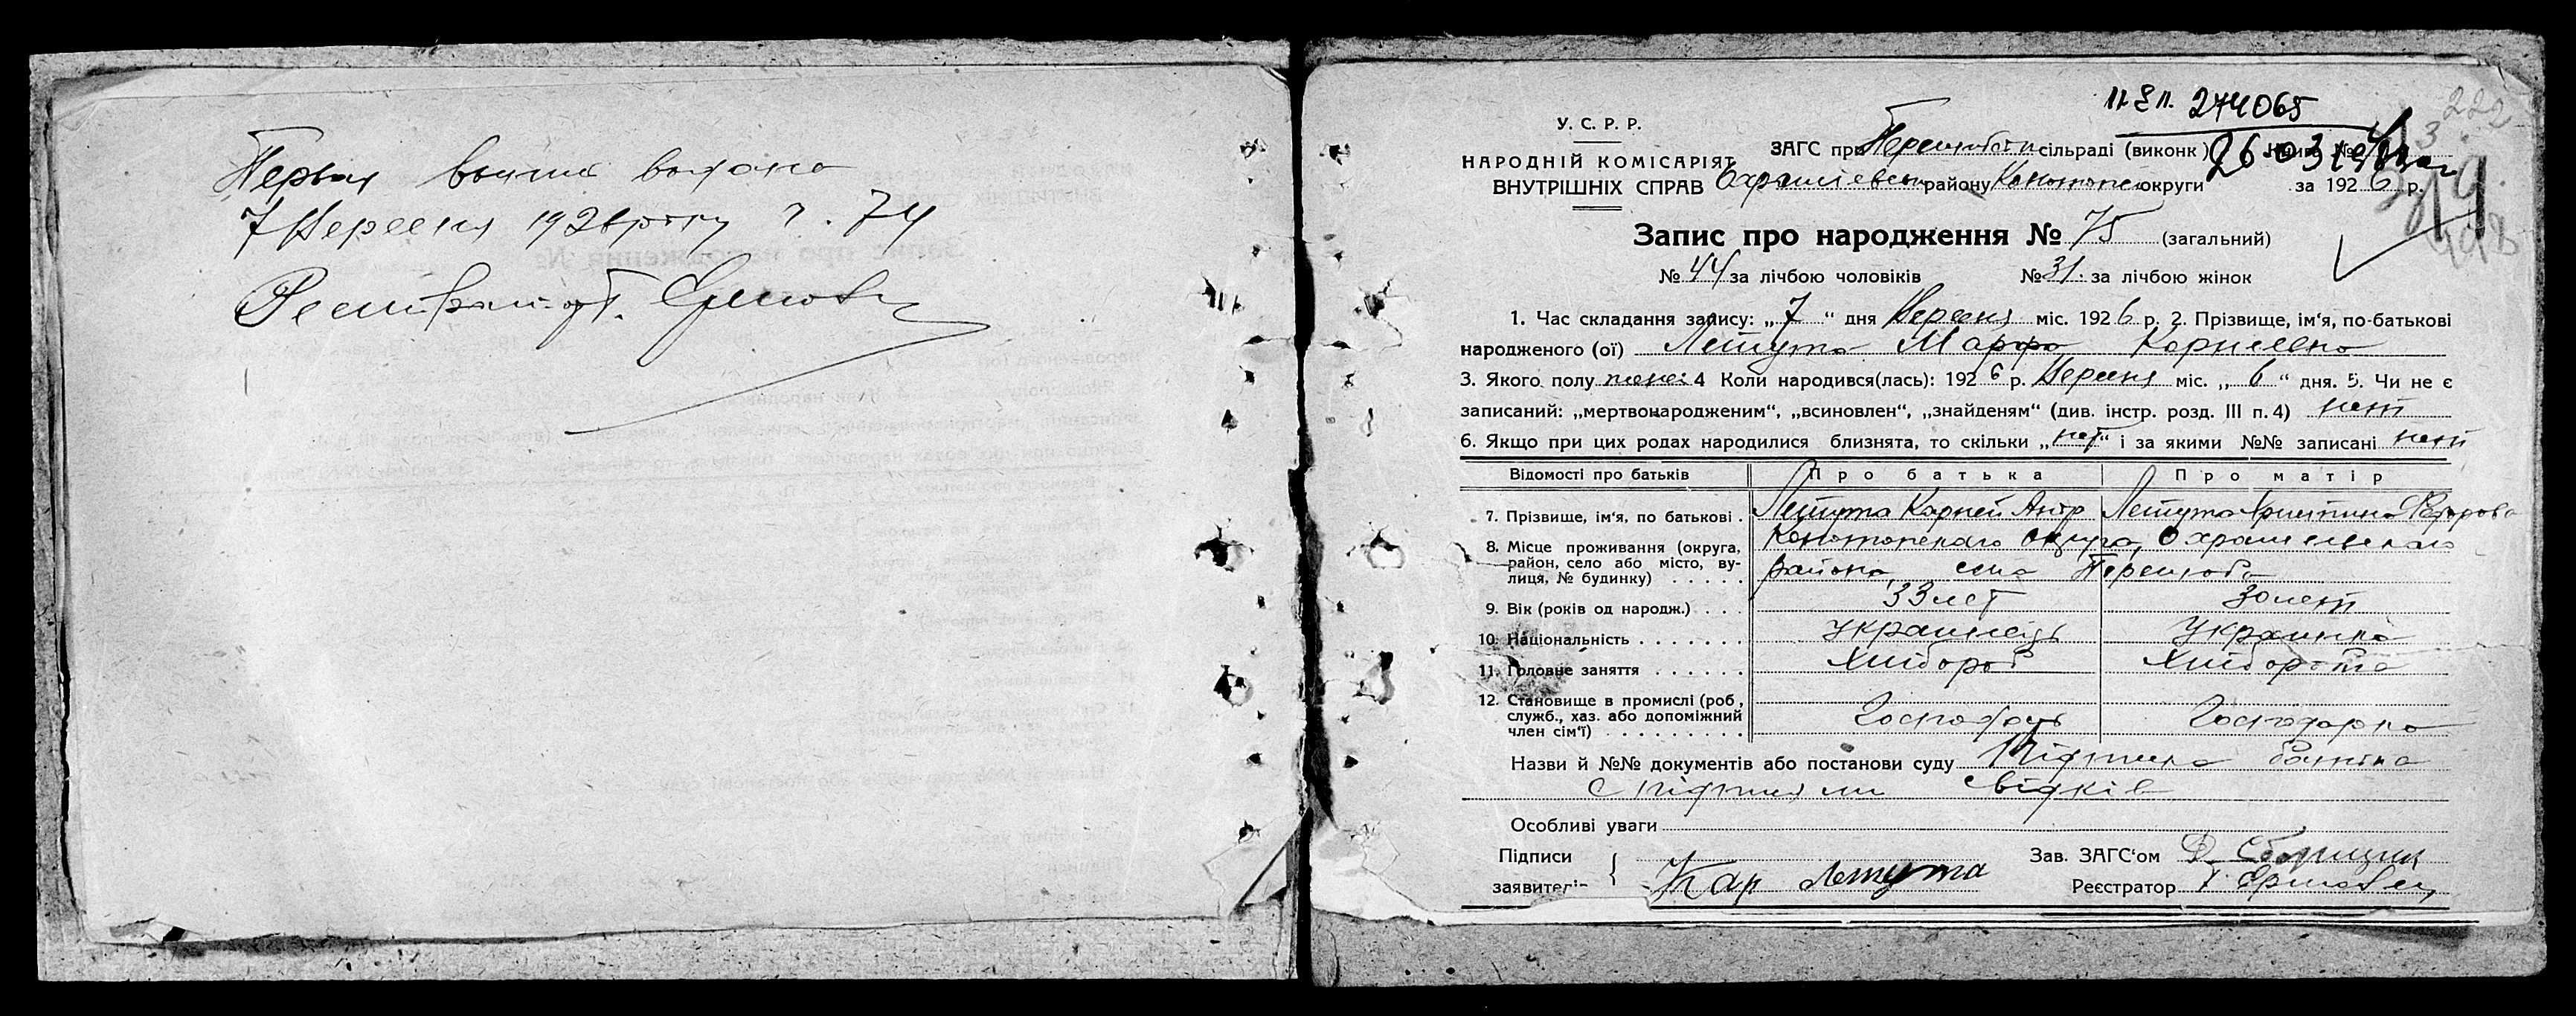 Первая выпись выдана
7 Вересня 1926 року ч. 74
II ЕП. 274065
222
У. С. Р. Р.
НАРОДНІЙ КОМІСАРІЯТ
ВНУТРІШНІХ СПРАВ
ЗАГС при сільраді (виконк.)
району Конотопс округи за 1926 р.
Запис про народження № 75 (загальний)
№ 44 за лічбою чоловіків № 31 за лічбою жінок
1. Час складання запису: „7“ дня Вересня міс. 1926 р. 2. Прізвище, ім‘я, по-батькові
народженого (ої) Лепута Марфа Корнеевна
3. Якого полу женс 4 Коли народився(лась): 1926 р. Вересня міс. „6“ дня. 5. Чи не є
записаний: „мертвонародженим“, „всиновлен“, „знайденям“ (див. інстр. розд. III п. 4) нет
6. Якщо при цих родах народилися близнята, то скільки „нет“ і за якими №№ записані нет
Відомості про батьків Про батька Про матір
7. Прізвище, ім‘я, по батькові. Лепута Карней Лепута
8. Місце проживання (округа, район, село або місто, вулиця, № будинку) Конотопскаго округа,
района, села
9. Вік (років од народж.) 33 лет 30 лет
10. Національність Украинець Украинка
11. Головне заняття Хлібороб Хлібороб
12. Становище в промислі (роб, служб., хаз. або допоміжний член сім‘ї) Господарь Господарка
Назви й №№ документів або постанови суду Підписка батька
с підписями свідків
Особливі уваги
Підписи
заявителів Кар Лепута
Зав. ЗАГС‘ом
Реєстратор